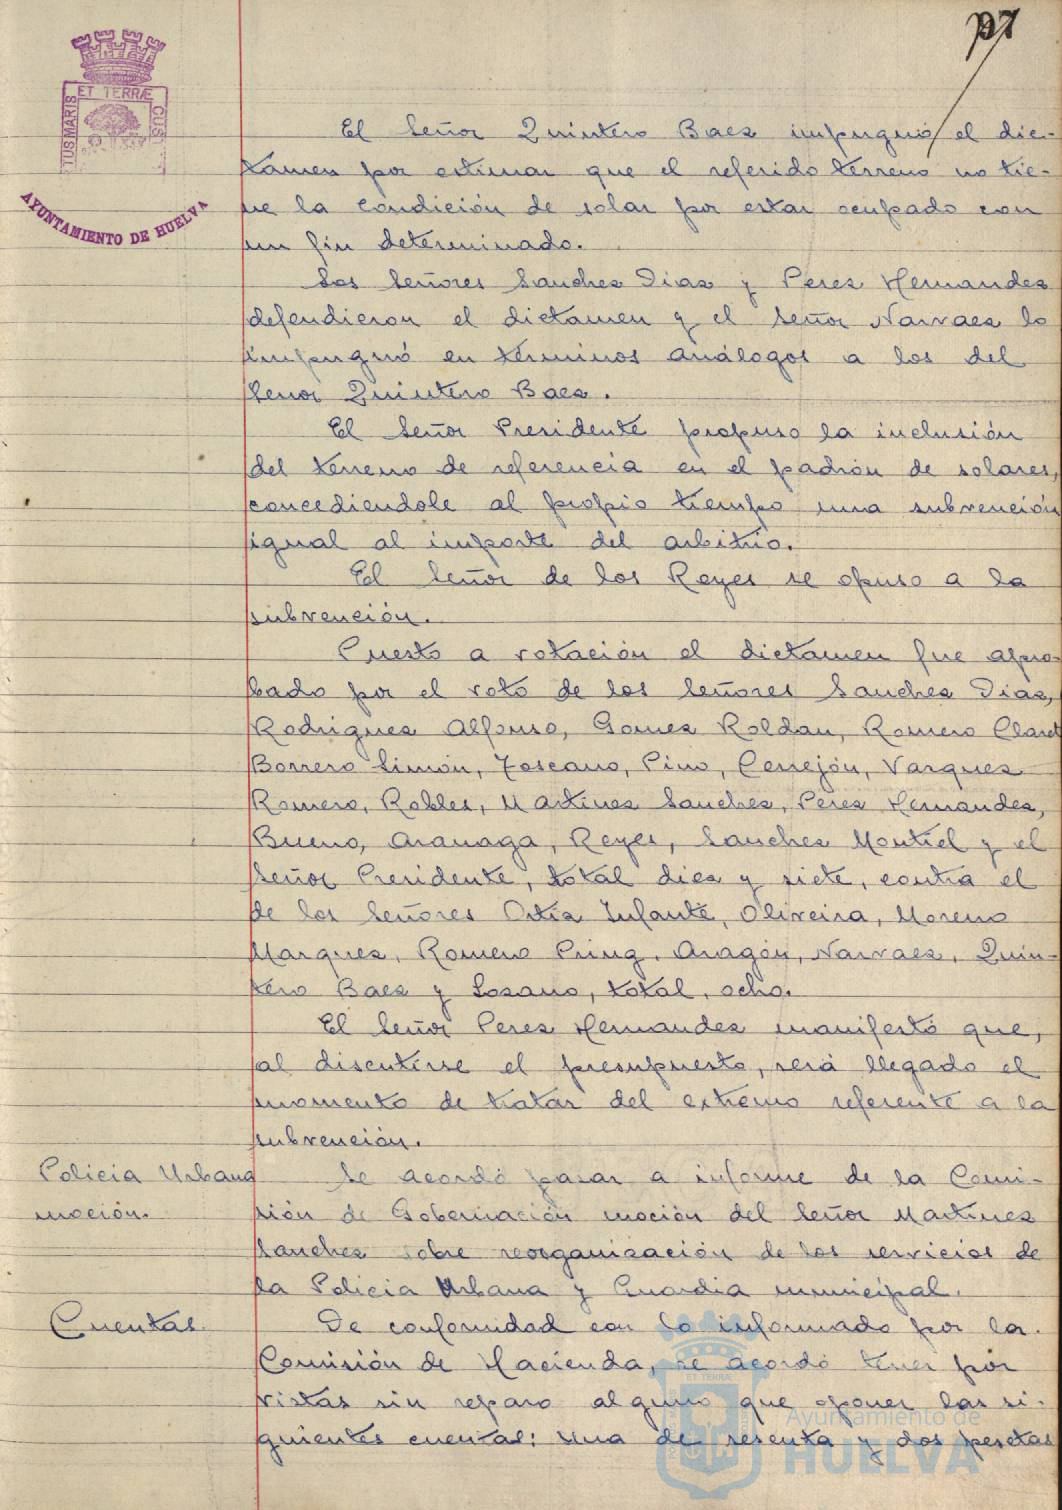 p7
ET TERRÆ
TUS MARIS
CUS
AYUNTAMIENTO DE HUELVA
El Señor Quintero Baez impugnó el dic-
tamen por estimar que el referido terreno no tie-
ne la condición de solar por estar ocupado con
un fin determinado.
Los Señores Sanchez Diaz y Perez Hernandez
defendieron el dictamen y el Señor Narvaez lo
impugnó en términos análogos a los del
Señor Quintero Baez.
El Señor Presidente propuso la inclusión
del terreno de referencia en el padrón de solares,
concediendole al propio tiempo una subvención
igual al importe del arbitrio.
El Señor de los Reyes se opuso a la
subvención.
Puesto a votación el dictamen fue apro-
bado por el voto de los Señores Sanchez Diaz,
Rodriguez Alfonso, Gomez Roldan, Romero Claret
Borrero Simón, Toscano, Pino, Cerrejón, Vazquez
Romero, Robles, Martinez Sanchez, Perez Hernandez,
Bueno, Aranaga, Reyes, Sanchez Montiel y el
Señor Presidente, total diez y siete, contra el
de los Señores Ortiz Infante, Oliveira, Moreno
Marquez, Romero Pring, Aragón, Narvaez, Quin-
tero Baez y Lozano, total, ocho.
El Señor Perez Hernandez manifestó que,
al discutirse el presupuesto, será llegado el
momento de tratar del extremo referente a la
subvención.
Policia Urbana
moción.
Se acordó pasar a informe de la Comi-
sión de Gobernación moción del Señor Martinez
Sanchez sobre reorganización de los servicios de
la Policia Urbana y Guardia municipal.
Cuentas.
De conformidad con lo informado por la
Comisión de Hacienda, se acordó tener por
vistas sin reparo alguno que oponer las si-
guientes cuentas: Una de sesenta y dos pesetas
ET TERRÆ
Ayuntamiento de
HUELVA